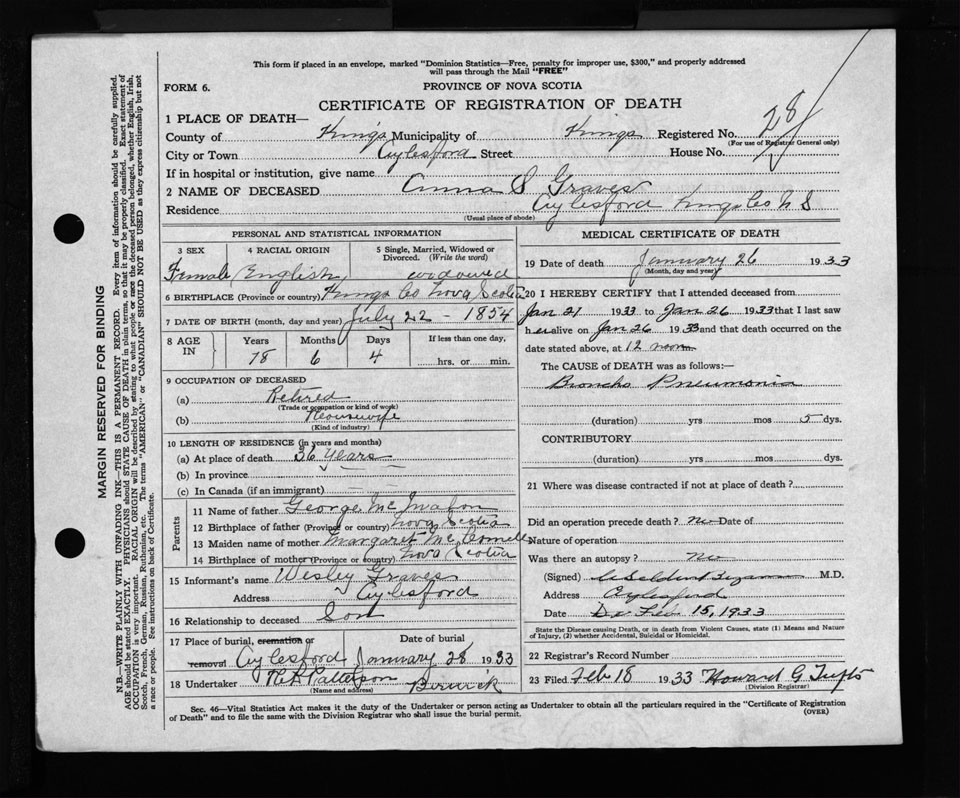 This form if placed in an envelope, marked "Dominion Statistics—Free, penalty for improper use, $300," and properly addressed
will pass through the Mail "FREE"
FORM 6.
PROVINCE OF NOVA SCOTIA
CERTIFICATE OF REGISTRATION OF DEATH
1 PLACE OF DEATH—
County of Kings Municipality of Kings Registered No. 28
(For use of Registrar General only)
City or Town Aylesford Street House No.
If in hospital or institution, give name
2 NAME OF DECEASED Anna S Graves
Residence Aylesford Kings Co N S
(Usual place of abode)
PERSONAL AND STATISTICAL INFORMATION
3 SEX 4 RACIAL ORIGIN 5 Single, Married, Widowed or
Divorced. (Write the word)
Female English widowed
6 BIRTHPLACE (Province or country) Kings Co Nova Scotia
7 DATE OF BIRTH (month, day and year) July 22 - 1854
8 AGE IN Years Months Days If less than one day,
78 6 4 hrs. or min.
9 OCCUPATION OF DECEASED
(a) Retired
(Trade or occupation or kind of work)
(b) Housewife
(Kind of industry)
10 LENGTH OF RESIDENCE (in years and months)
(a) At place of death 36 Years
(b) In province
(c) In Canada (if an immigrant)
Parents
11 Name of father George Mc
12 Birthplace of father (Province or country) Nova Scotia
13 Maiden name of mother Margaret
14 Birthplace of mother (Province or country) Nova Scotia
15 Informant's name Wesley Graves
Address Aylesford
16 Relationship to deceased Son
17 Place of burial, cremation or Date of burial
removal Aylesford January 28 1933
18 Undertaker Patterson Berwick
(Name and address)
MEDICAL CERTIFICATE OF DEATH
19 Date of death January 26 1933
(Month, day and year)
20 I HEREBY CERTIFY that I attended deceased from
Jan 21 1933 to Jan 26 1933 that I last saw
her alive on Jan 26 1933 and that death occurred on the
date stated above, at 12 noon
The CAUSE OF DEATH was as follows:—
Broncho Pneumonia
(duration) yrs mos 5 dys.
CONTRIBUTORY
(duration) yrs mos dys.
21 Where was disease contracted if not at place of death?
Did an operation precede death? no Date of
Nature of operation
Was there an autopsy? no
(Signed) M.D.
Address Aylesford
Date Feb 15, 1933
State the Disease causing Death, or in death from Violent Causes, state (1) Means and Nature
of Injury, (2) whether Accidental, Suicidal or Homicidal.
22 Registrar's Record Number
23 Filed Feb 18 1933 Howard G Tufts
(Division Registrar)
Sec. 46—Vital Statistics Act makes it the duty of the Undertaker or person acting as Undertaker to obtain all the particulars required in the "Certificate of Registration
of Death" and to file the same with the Division Registrar who shall issue the burial permit.
(OVER)
MARGIN RESERVED FOR BINDING
N.B.—WRITE PLAINLY WITH UNFADING INK—THIS IS A PERMANENT RECORD. Every item of information should be carefully supplied.
AGE should be stated EXACTLY. PHYSICIANS should STATE CAUSE OF DEATH in plain terms, so that it may be properly classified. Exact statement of
OCCUPATION is very important. RACIAL ORIGIN will be described by stating to what people or race the deceased person belonged, whether English, Irish,
Scotch, French, German, Russian, Ruthenian, etc. The terms "AMERICAN" or "CANADIAN" SHOULD NOT BE USED as they express citizenship but not
a race or people. See instructions on back of Certificate.